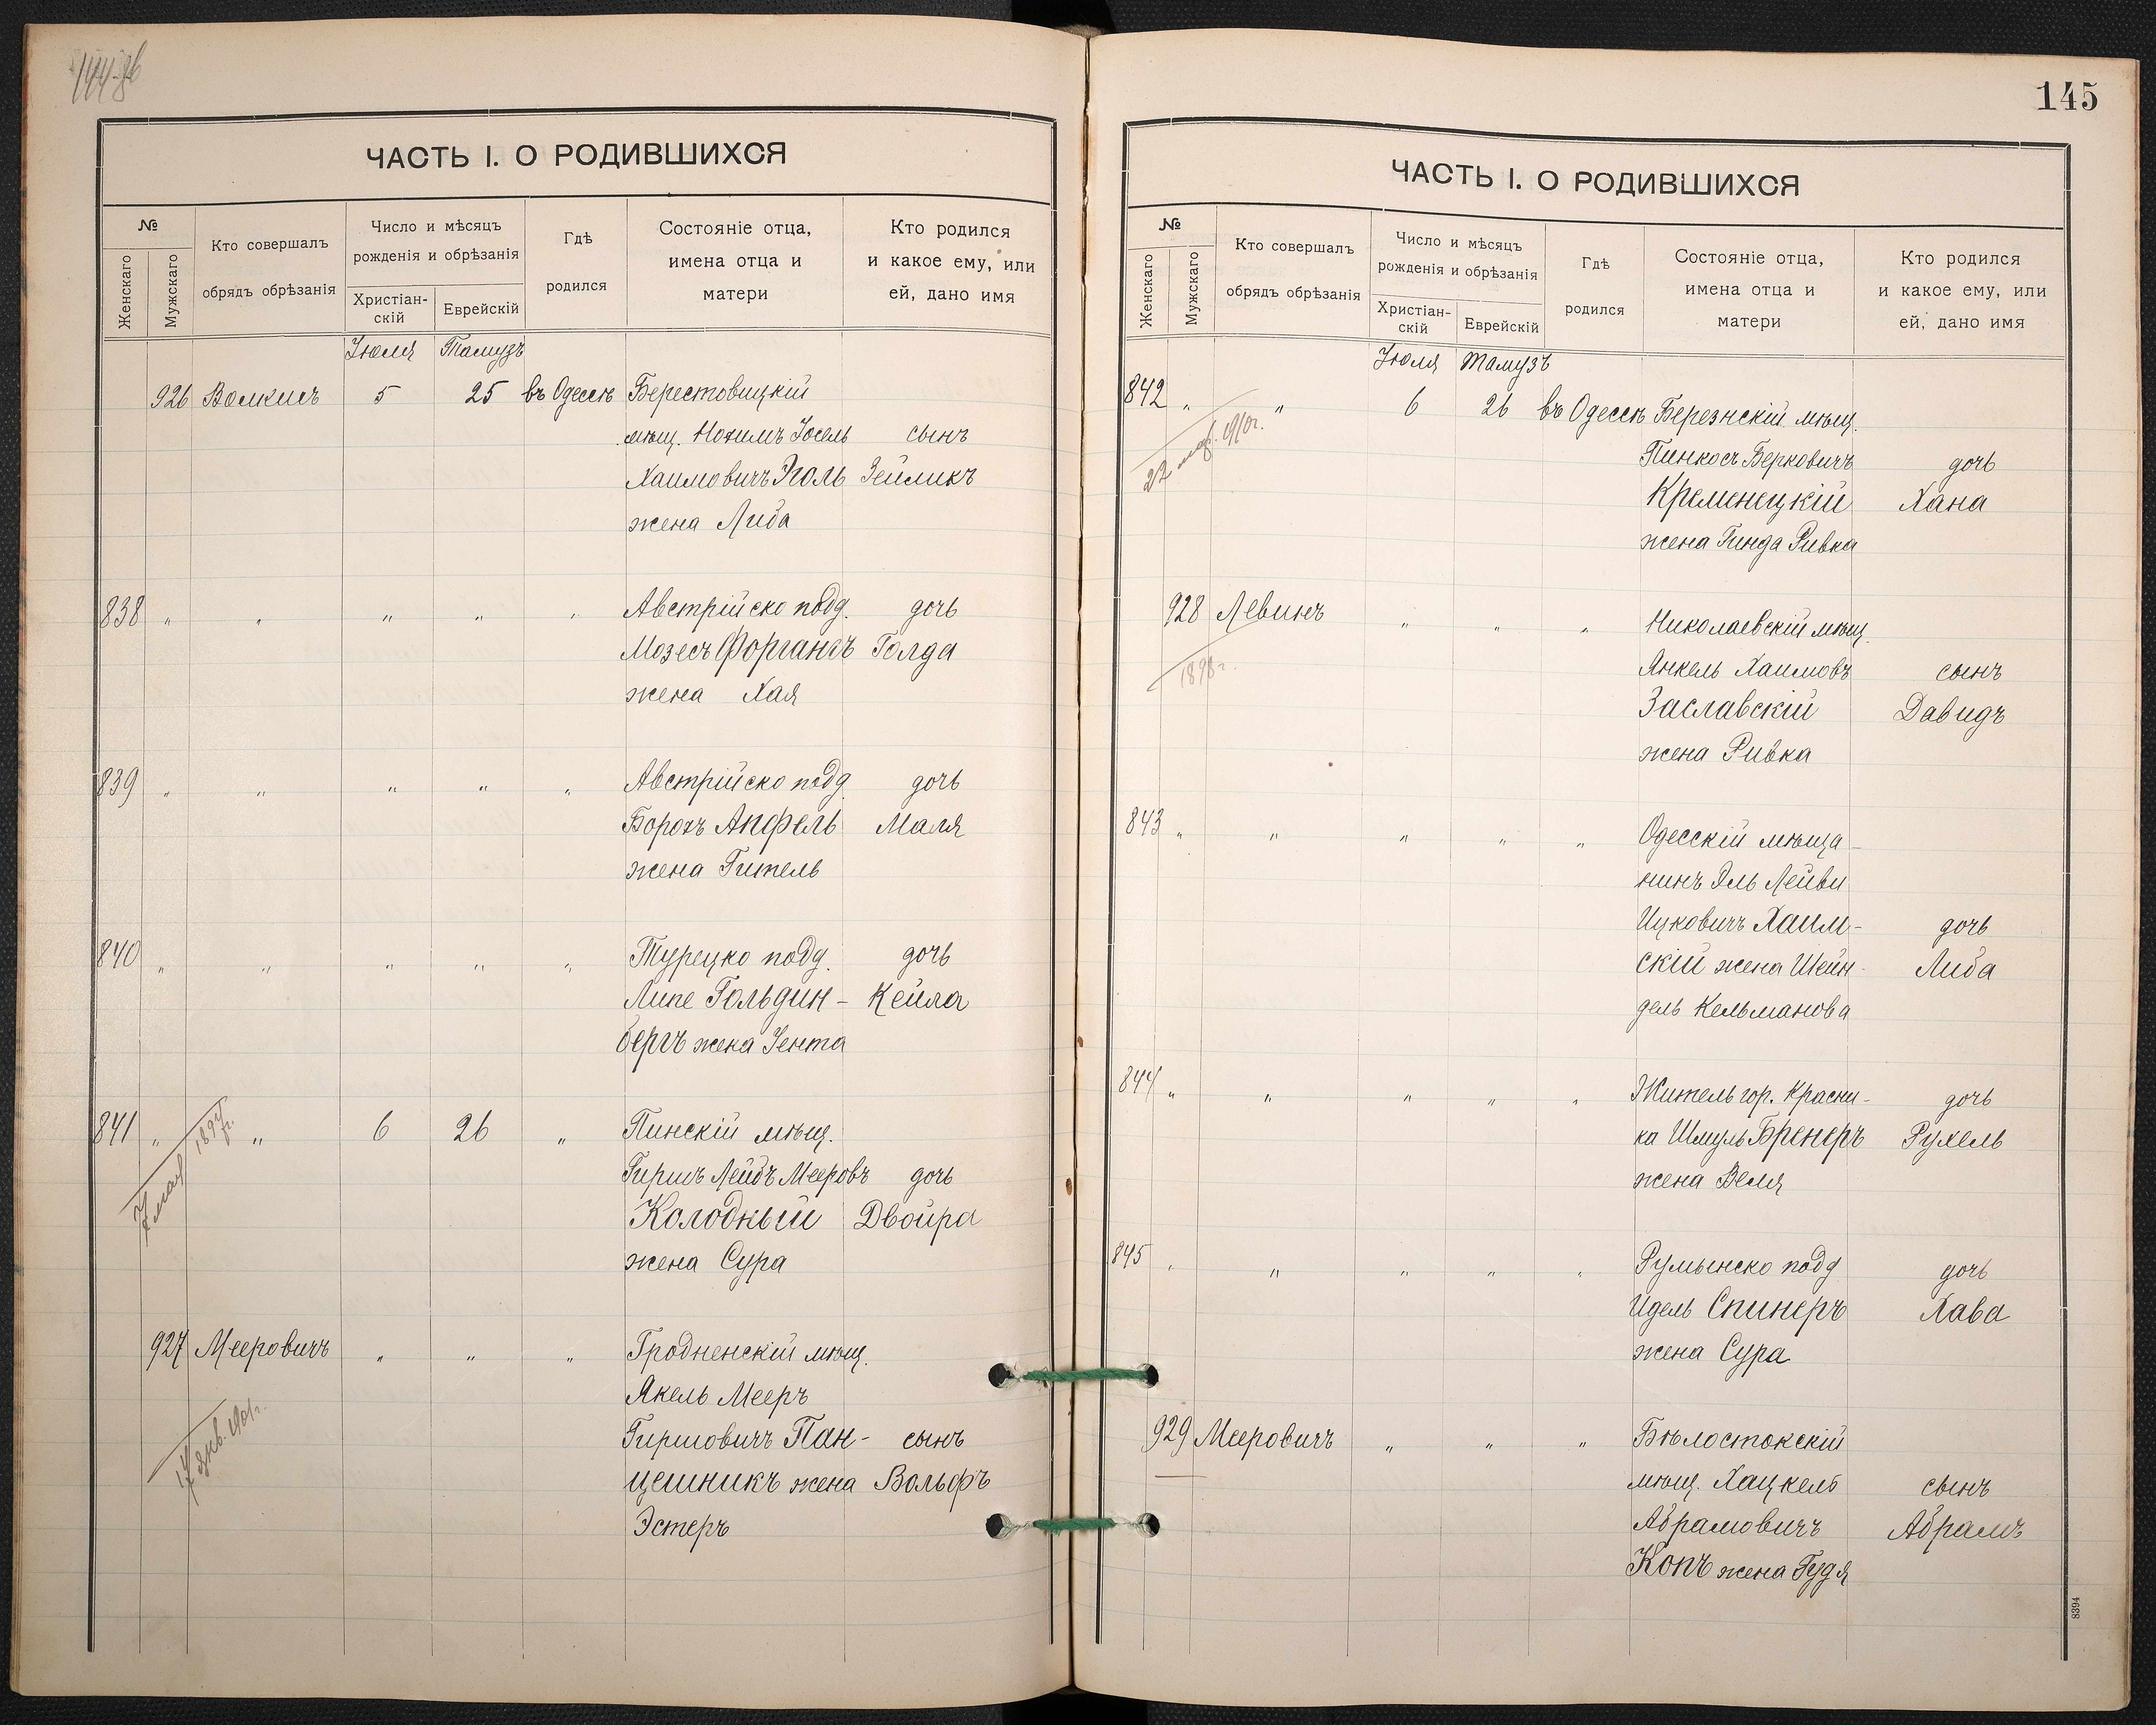 ЧАСТЬ I. О РОДИВШИХСЯ
№
Женскаго
Мужскаго
Кто совершалъ
обрядъ обрѣзанія
Число и мѣсяцъ
рожденія и обрѣзанія
Христіан-
скій
Еврейскій
Гдѣ
родился
Состояніе отца,
имена отца и
матери
Кто родился
и какое ему, или
ей, дано имя
Іюля Тамузъ
926 Волкисъ 5 25 въ Одессѣ Берестовицкій
мѣщ. Нохимъ Іосель сынъ
Хаимовичъ Эголь Зейликъ
жена Либа
838 " " " " " Австрійско подд. дочь
Мозесъ Форгангъ Голда
жена Хая
839 " " " " " Австрійско подд. дочь
Борохъ Апфель Маля
жена Гитель
840 " " " " " Турецко подд. дочь
Липе Гольдин- Кейла
бергъ жена Іента
841 " " 6 26 " Пинскій мѣщ.
7 мая 1897 г.
Гиршъ Лейбъ Мееровъ дочь
Колодный Двойра
жена Сура
927 Мееровичъ " " " Гродненскій мѣщ.
Якель Мееръ
17 янв. 1901 г.
Гиршовичъ Пан- сынъ
цешникъ жена Вольфъ
Эстеръ
145
ЧАСТЬ I. О РОДИВШИХСЯ
№
Женскаго
Мужскаго
Кто совершалъ
обрядъ обрѣзанія
Число и мѣсяцъ
рожденія и обрѣзанія
Христіан-
скій
Еврейскій
Гдѣ
родился
Состояніе отца,
имена отца и
матери
Кто родился
и какое ему, или
ей, дано имя
Іюля Тамузъ
842 " " 6 26 въ Одессѣ Березнскій мѣщ.
22 1910 г.
Пинкосъ Берковичъ дочь
Кременецкій Хана
жена Гинда Ривка
928 Левинъ " " " Николаевскій мѣщ.
1898 г.
Янкель Хаимовъ сынъ
Заславскій Давидъ
жена Ривка
843 " " " " " Одесскій мѣща-
нинъ Эль Лейви
Ицковичъ Хаим- дочь
скій жена Шейн- Либа
дель Кельманова
844 " " " " " Житель гор. Красни- дочь
ка Шмуль Бренеръ Рухель
жена Веля
845 " " " " " Румынско подд. дочь
Идель Спинеръ Хава
жена Сура
929 Мееровичъ " " " Бѣлостокскій
мѣщ. Хацкель сынъ
Абрамовичъ Абрамъ
Копъ жена Гудя
8394